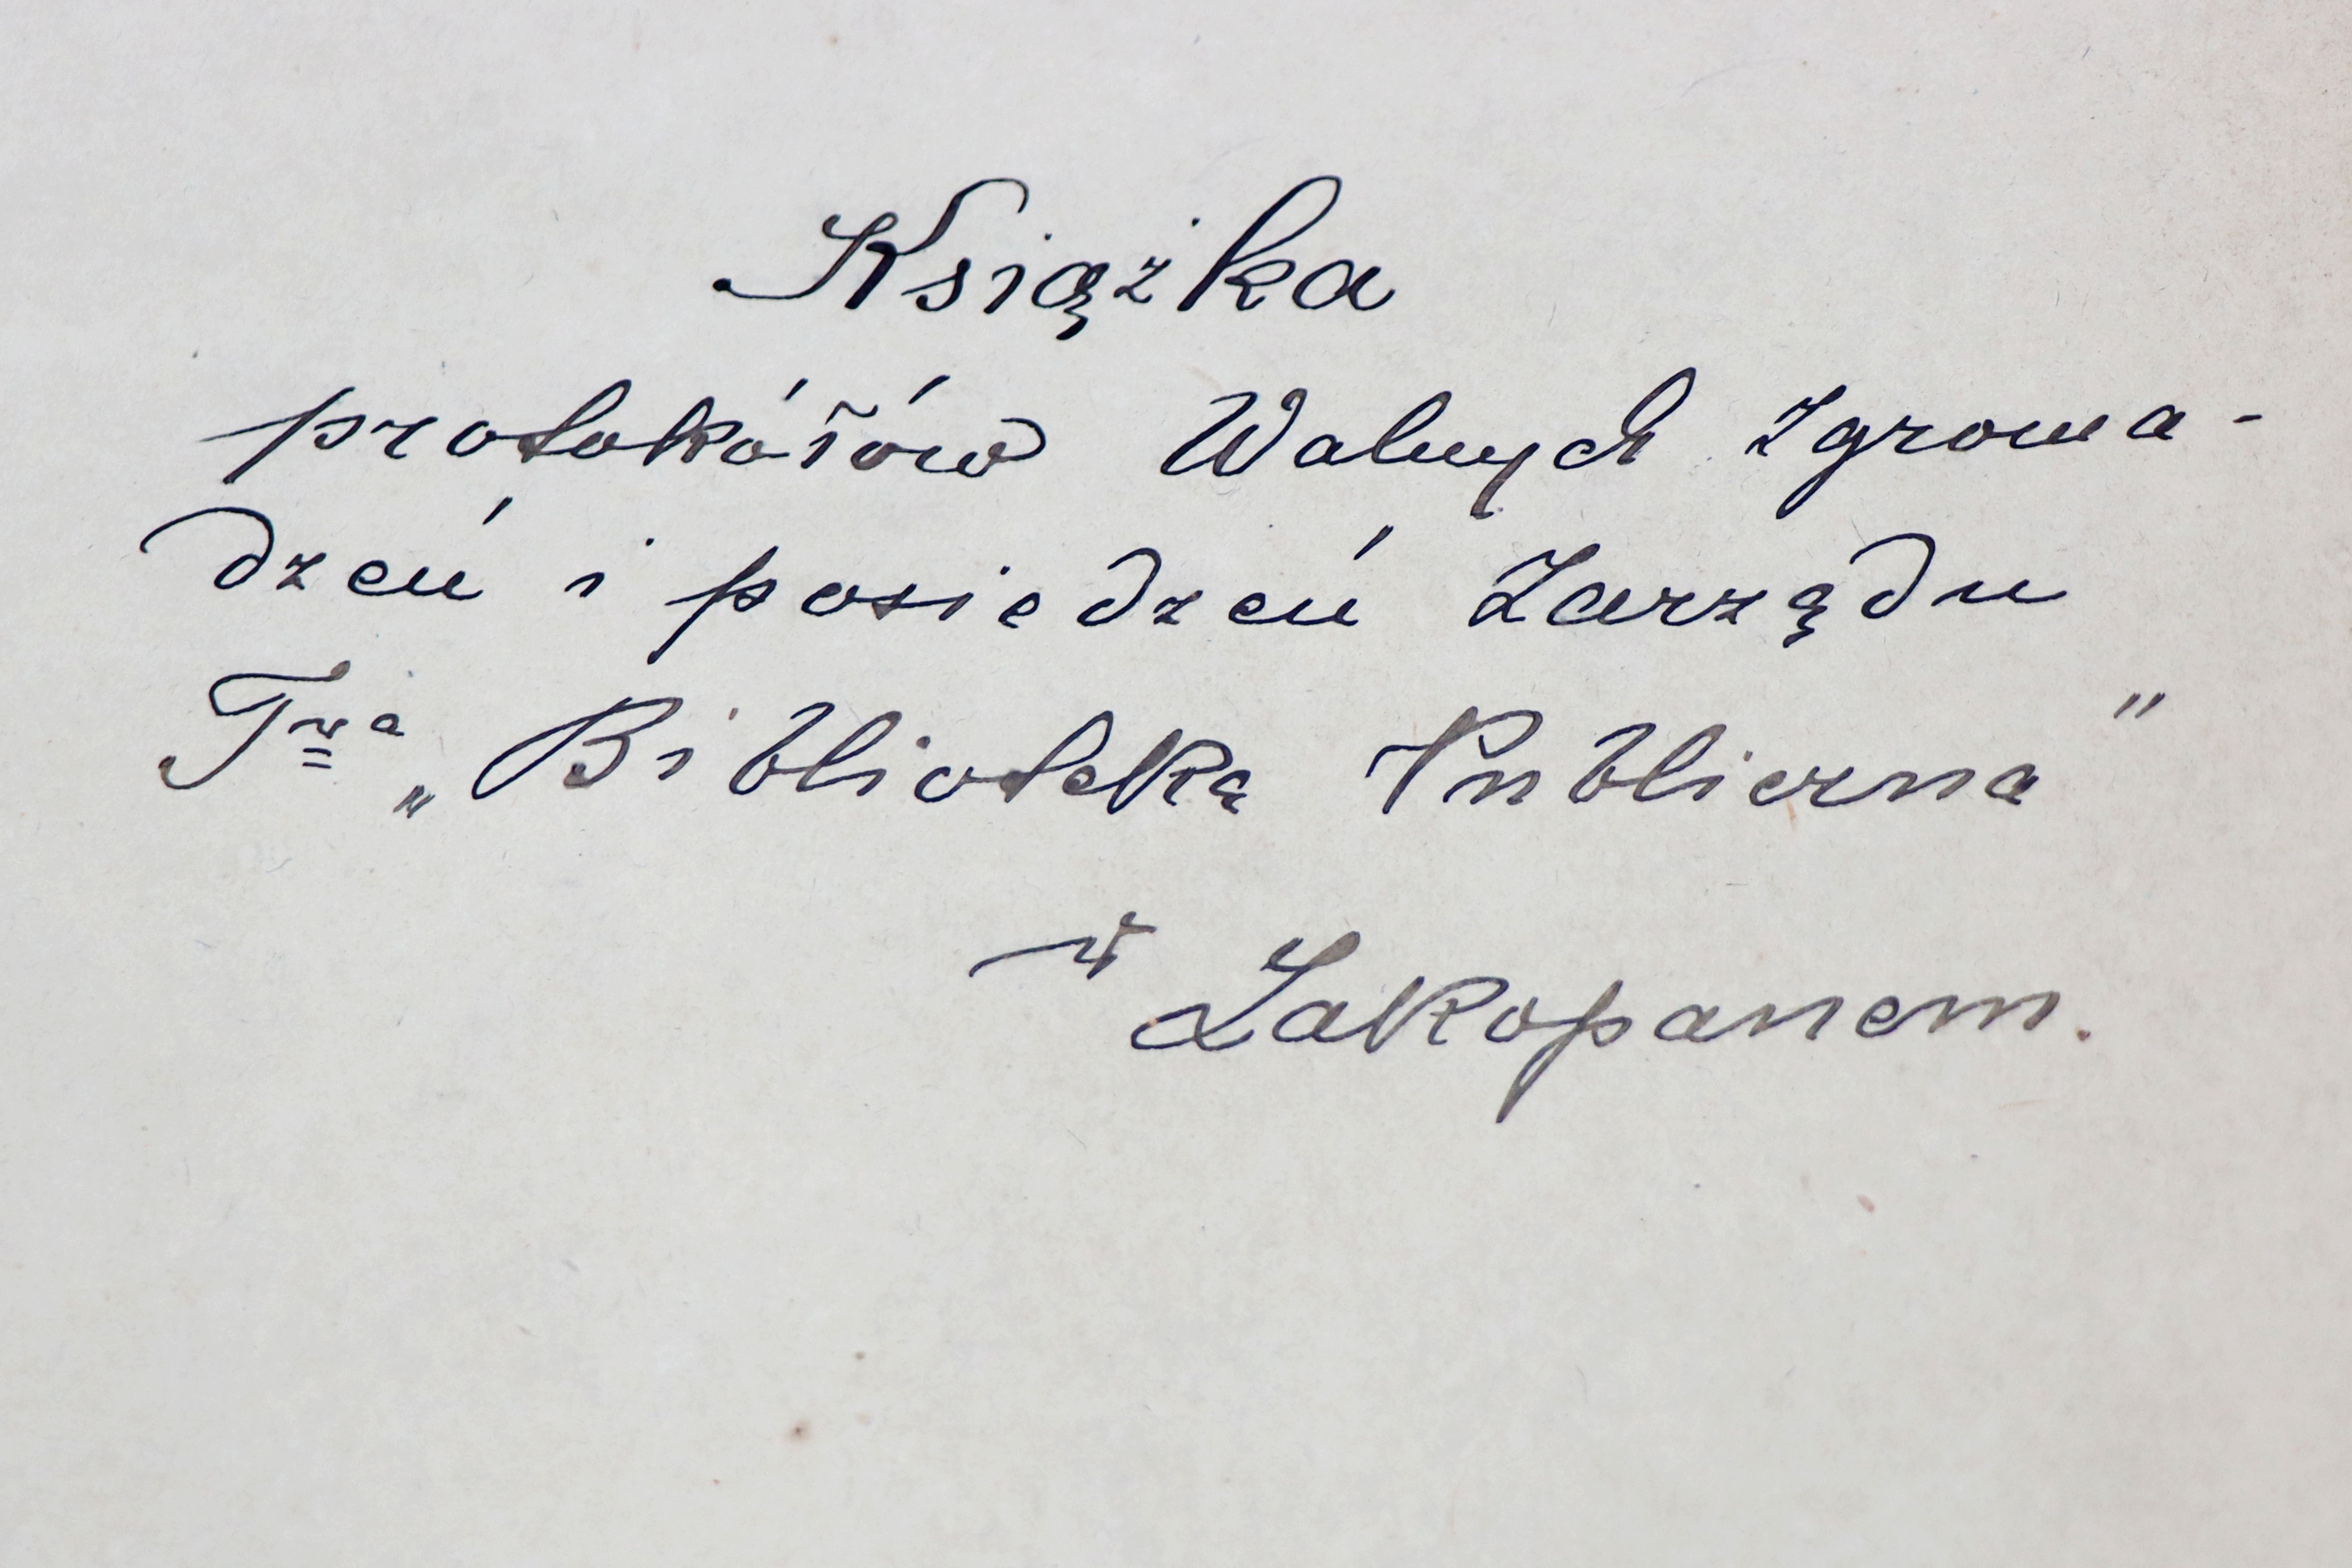 Książka
protokółów Walnych Zgroma-
dzeń i posiedzeń Zarządu
Twa „Biblioteka Publiczna"
w Zakopanem.